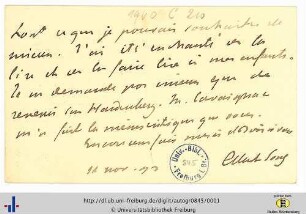 tout ce que je pouvais souhaiter de
mieux. J'ai été enchanté de la
lire et de la faire lire à mes enfants.
Je ne demande pas mieux que de
revenir sur Hardenberg. M. Cavaignac
m'a fait la même critique que vous.
Encore une fois merci et
10 nov. 93 Albert Sorel
Univ.-Bibl.
845
Freiburg i. Br.
http://dl.ub.uni-freiburg.de/diglit/autogr0845/0001
© Universitätsbibliothek Freiburg